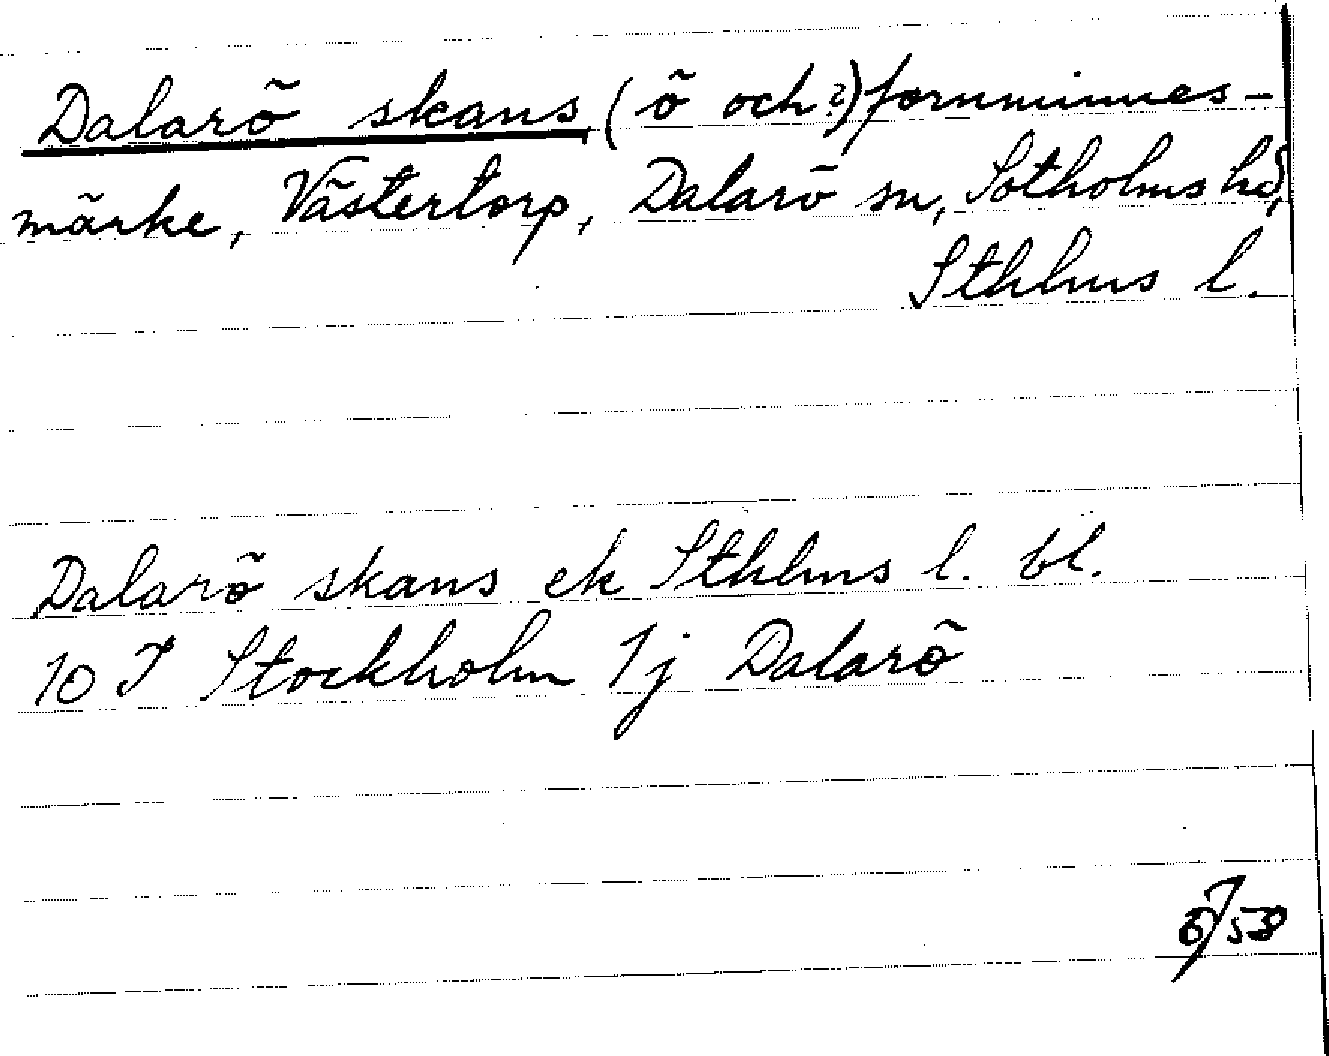 Dalarö skans (ö och?) fornminnes-
märke, Västertorp, Dalarö sn, Sotholms hd,
Sthlms l.
Dalarö skans ek Sthlms l. bl.
10 I Stockholm 1j Dalarö
/58